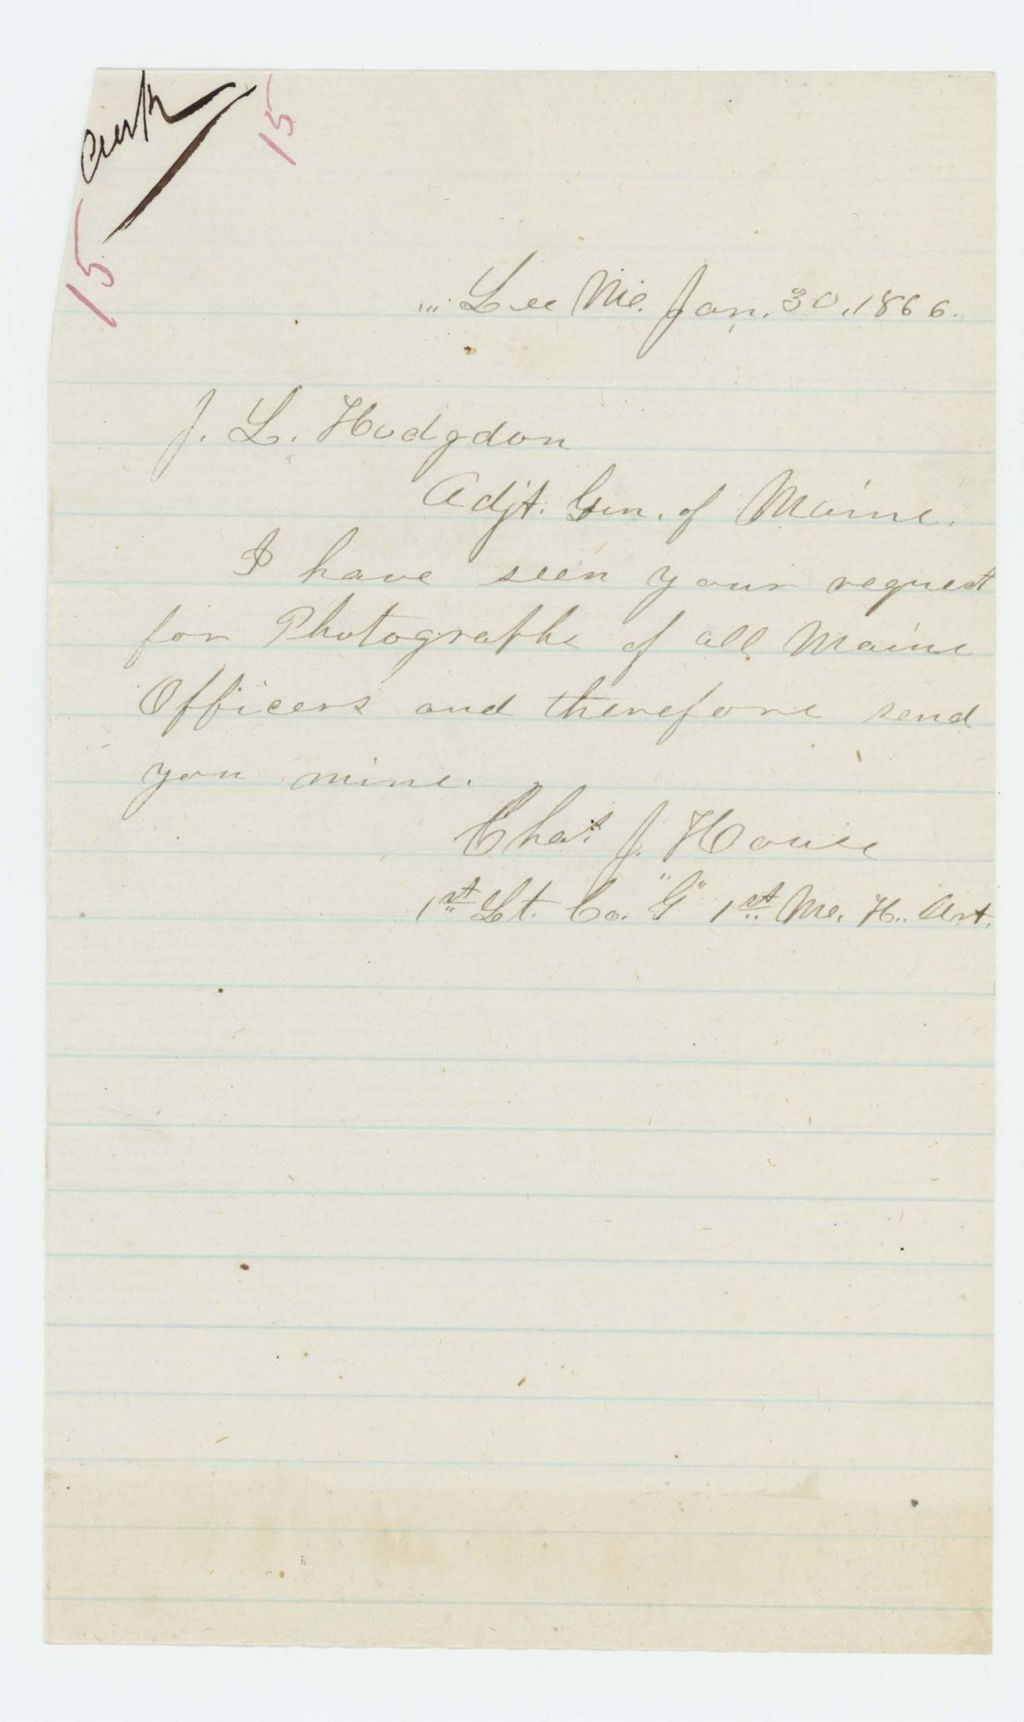 15
15
Lee Me. Jan. 30, 1866.
J. L. Hodgdon
Adjt. Gen. of Maine.
I have seen your request
for Photographs of all Maine
Officers and therefore send
you mine.
Chas. J. House
1st Lt. Co. "G" 1st Me. H. Art.